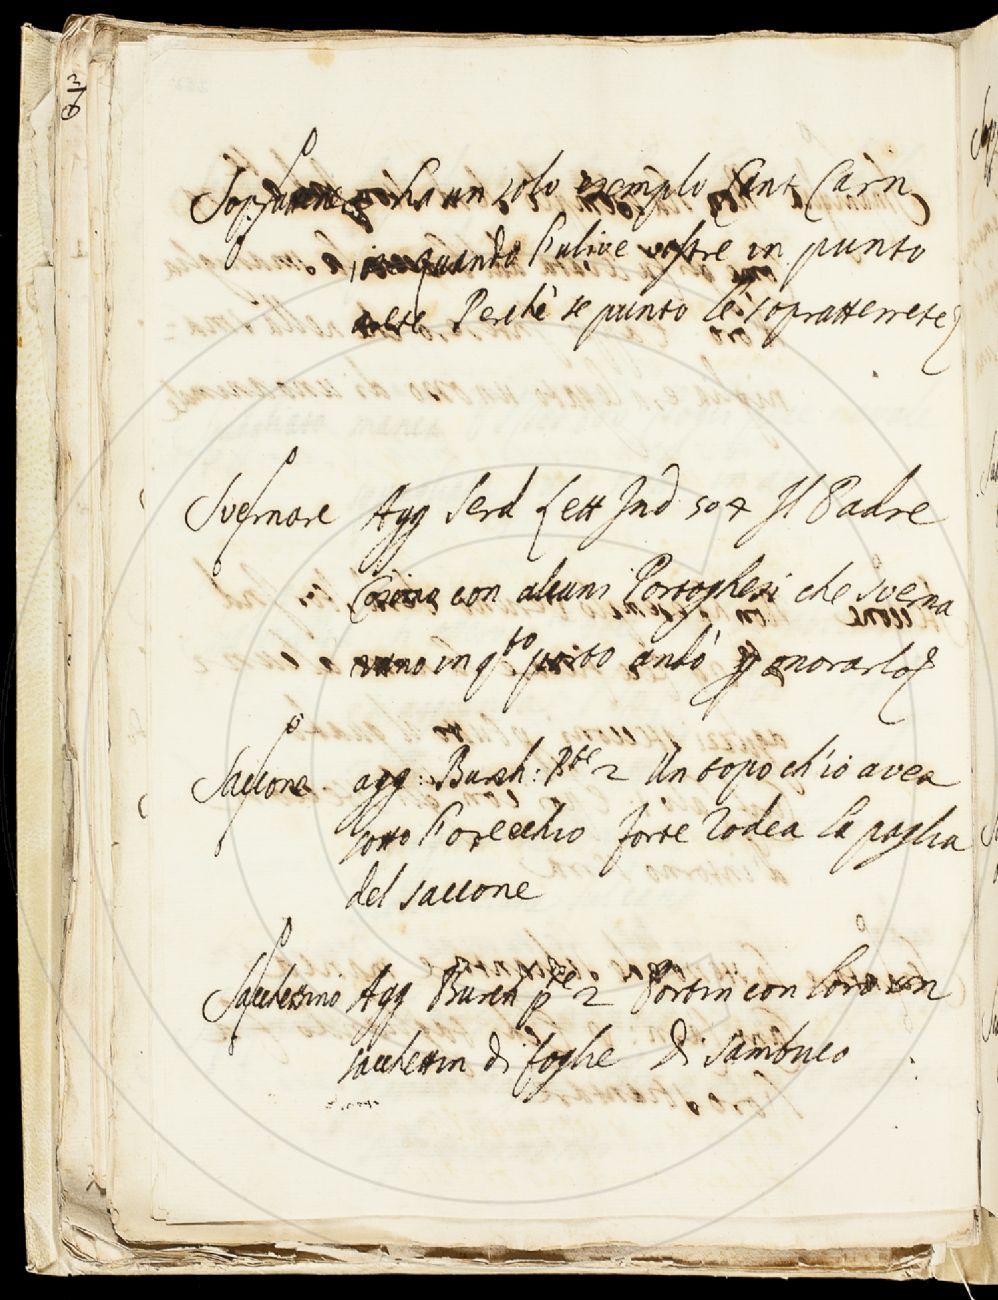 3/6
ha un solo esemplo Cant Carn
quando l'ulive vostre in punto
Perchè se punto le sopratterrete
Svernare Agg Serd Lett Ind 504 Il Padre
con alcuni Portoghesi che sverna
vano in q.to porto andò onorarlo
Saccone agg: Burch: P.te 2 Un topo ch'io avea
sotto l'orecchio forte rodea la paglia
del saccone
Sacchettino Agg Burch p.te 2 Portin con loro un
sacchettin di foglie di sambuco